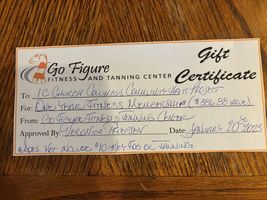 Go Figure
FITNESS AND TANNING CENTER
Gift
Certificate
To: IC CHURCH COMMUNITY
For: ONE YEAR FITNESS MEMBERSHIP
From: GO FIGURE FITNESS & TANNING CENTER
Approved By: VERONICA Date: JANUARY 20
DOES NOT INCLUDE $10 KEY FOB OR TANNING